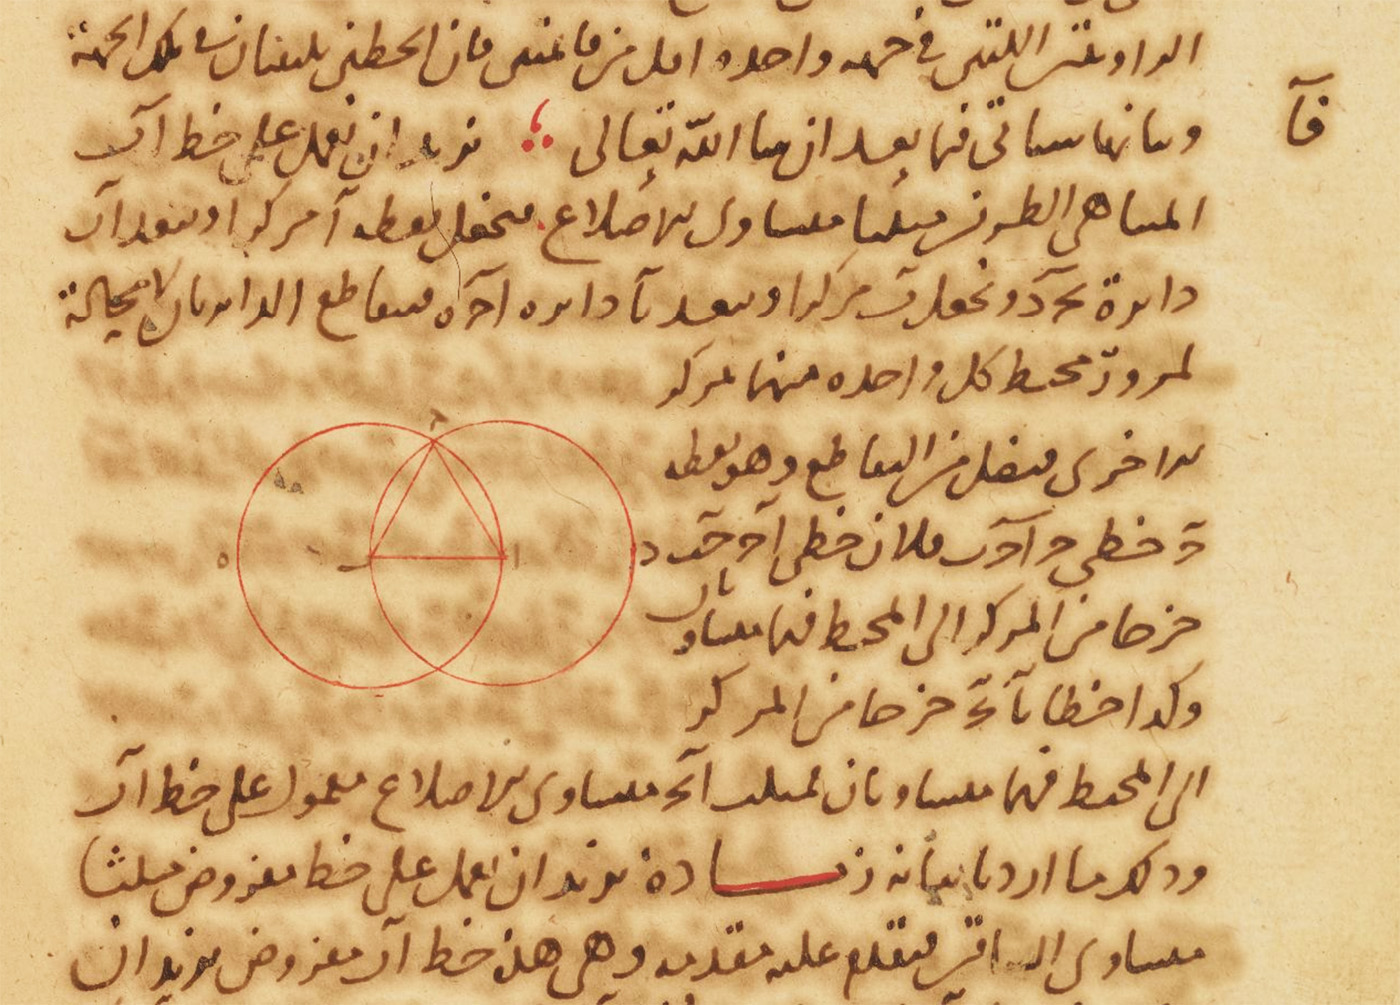 الراويتين اللتين في جهه واحده اقل من قائمتين فان الخطين يلتقيان في تلك الجهة
وبيانهما سياتي فيما بعد ان شا الله تعالى نريد ان نعمل على خط اَب
فآ
المتناهي الطرفين مثلثا متساوى الاضلاع فنجعل نقطه آ مركزا وببعد اَب
دايرة بحَد ونجعل بَ مركزا وببعد بآ دايره احَه فيتقاطع الدايرتان لا محالة
لمرور محيط كل واحده منهما بمركز
الاخرى فنصل من التقاطع وهو نقطه
حَ خطي حَ ا حَب فلان خطى اَحَ اَب
خرجا من المركز الى المحيط فهما متساويان
وكذا خطا بآ بَح خرجا من المركز
الى المحيط فهما متساويان فمثلث اَبح متساوى الاضلاع معمول على خط اَب
وذلك ما اردنا بيانه زيادة نريد ان نعمل على خط مفروض مثلثا
متساوى الساقين فنقدم عليه مقدمه وهي هذه خط اَب مفروض نريد ان
ح
ه
ب
ا
د